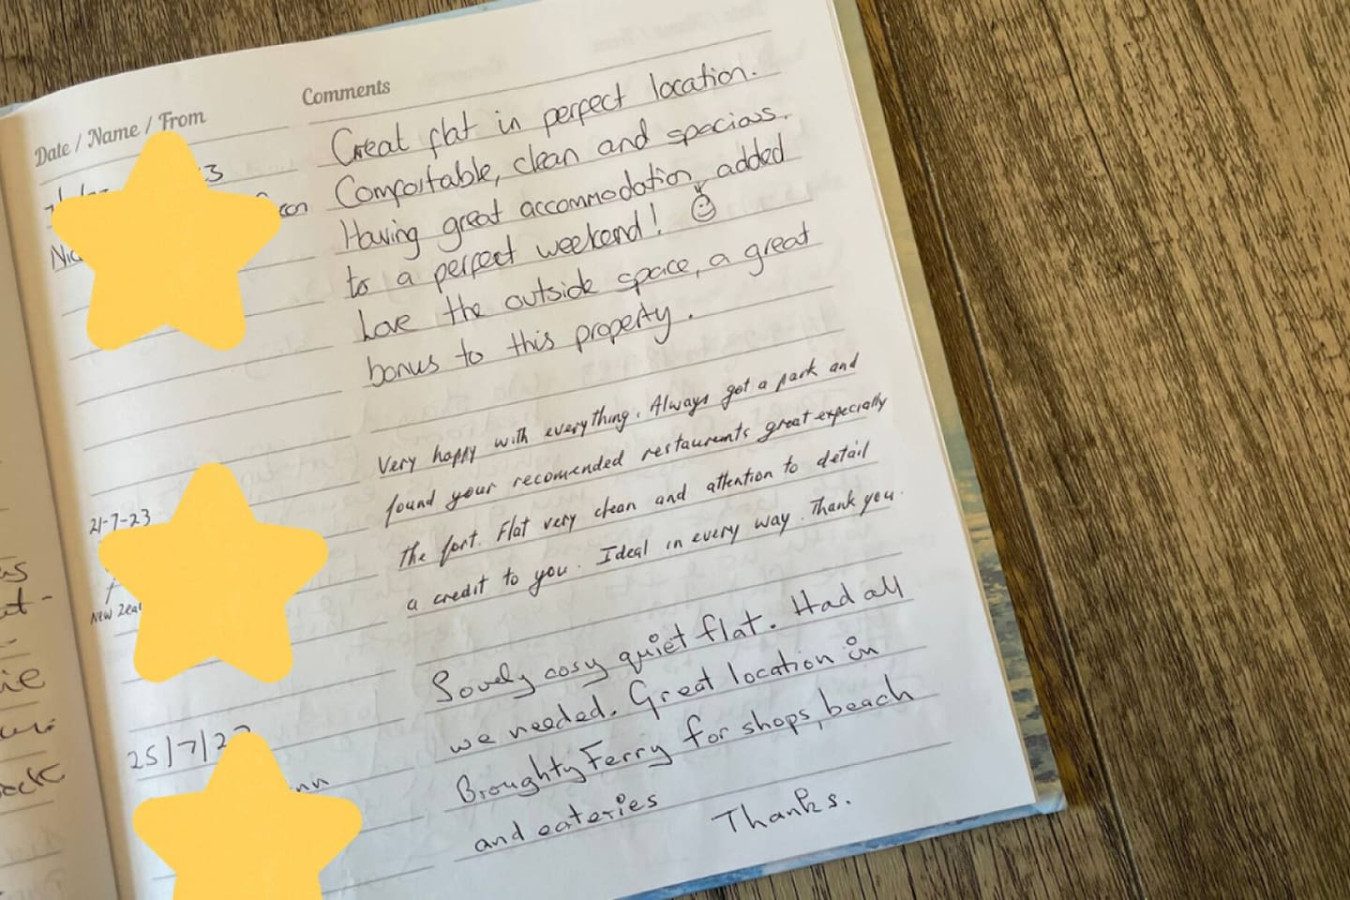 Date / Name / From
Comments
3
Great flat in perfect location.
Comfortable, clean and specious.
Having great accommodation, added
to a perfect weekend!
Love the outside space, a great
bonus to this property.
21-7-23
New Zea
Very happy with everything. Always got a park and
found your recomended restaurents great expecially
the fort. Flat very clean and attention to detail
a credit to you. Ideal in every way. Thank you.
25/7/2
nn
Lovely cosy quiet flat. Had all
we needed. Great location in
Broughty Ferry for shops, beach
and eateries
Thanks.